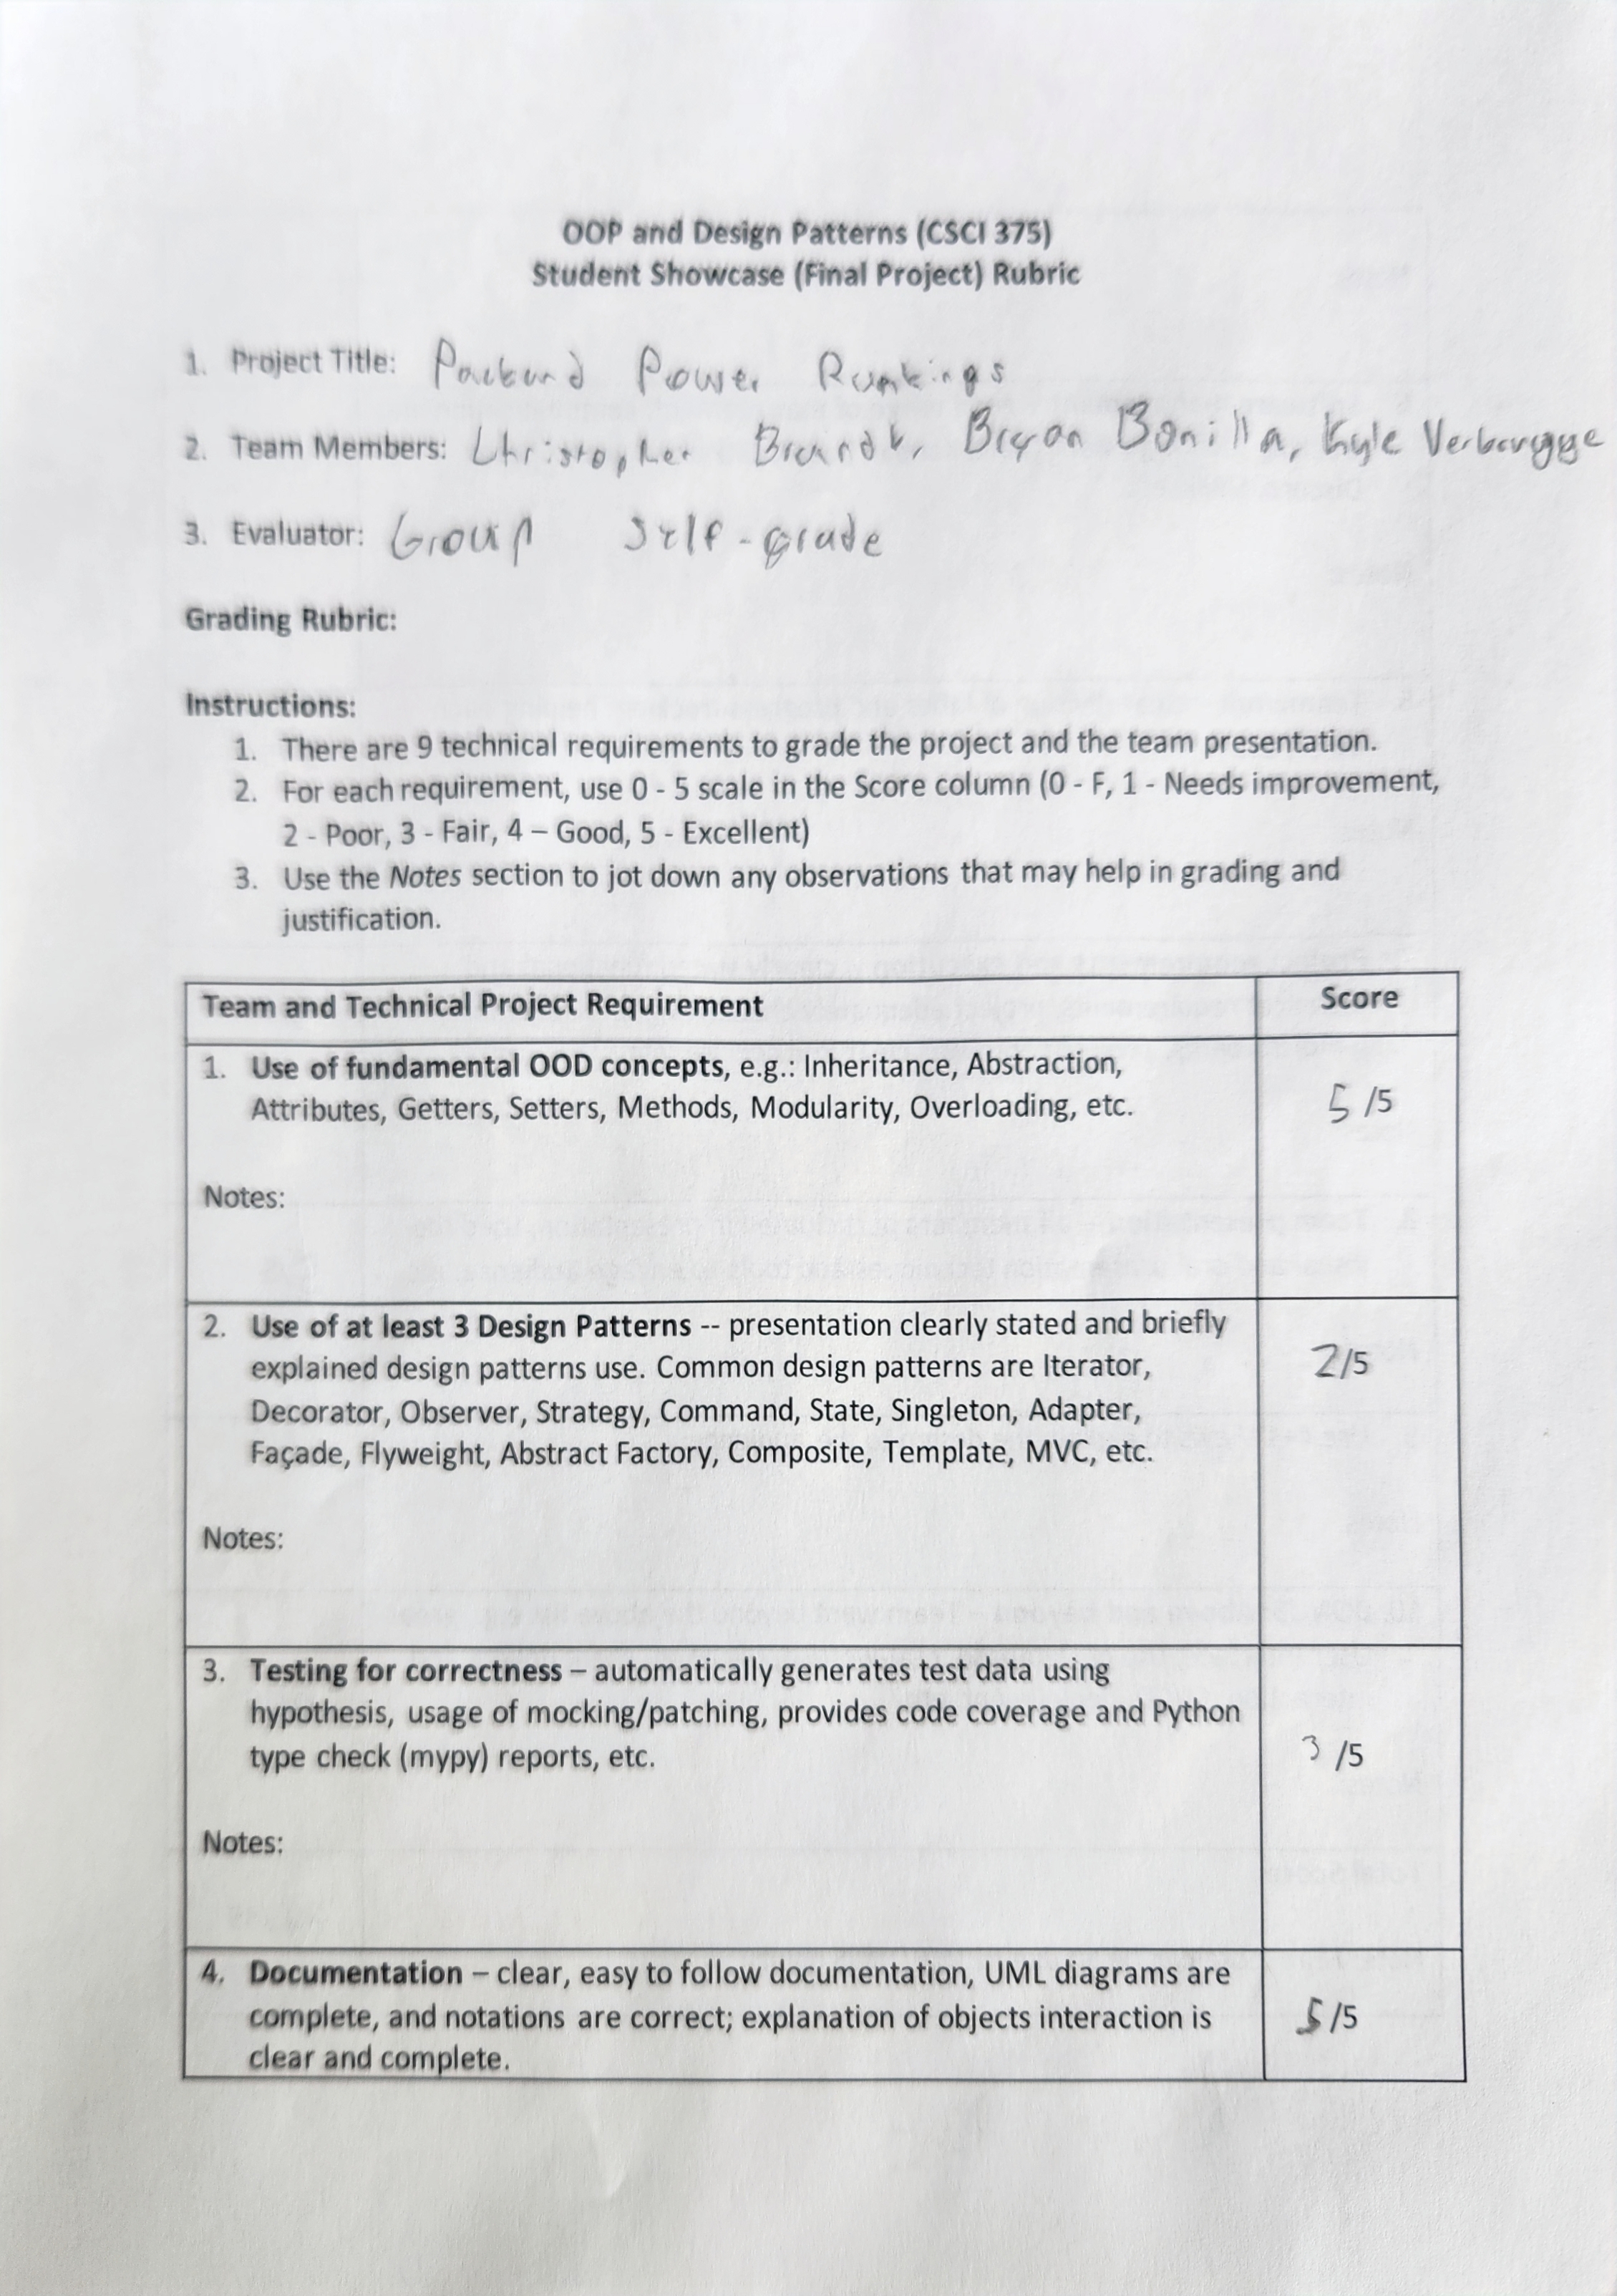 OOP and Design Patterns (CSCI 375)
Student Showcase (Final Project) Rubric
1. Project Title: Power Rankings
2. Team Members: Christopher Bryan Bonilla, Kyle
3. Evaluator: Group Self-grade
Grading Rubric:
Instructions:
1. There are 9 technical requirements to grade the project and the team presentation.
2. For each requirement, use 0 - 5 scale in the Score column (0 - F, 1 - Needs improvement,
2 - Poor, 3 - Fair, 4 – Good, 5 - Excellent)
3. Use the Notes section to jot down any observations that may help in grading and
justification.
Team and Technical Project Requirement Score
1. Use of fundamental OOD concepts, e.g.: Inheritance, Abstraction,
Attributes, Getters, Setters, Methods, Modularity, Overloading, etc.
5 /5
Notes:
2. Use of at least 3 Design Patterns -- presentation clearly stated and briefly
explained design patterns use. Common design patterns are Iterator,
2/5
Decorator, Observer, Strategy, Command, State, Singleton, Adapter,
Façade, Flyweight, Abstract Factory, Composite, Template, MVC, etc.
Notes:
3. Testing for correctness – automatically generates test data using
hypothesis, usage of mocking/patching, provides code coverage and Python
type check (mypy) reports, etc.
3 /5
Notes:
4. Documentation – clear, easy to follow documentation, UML diagrams are
complete, and notations are correct; explanation of objects interaction is
5/5
clear and complete.